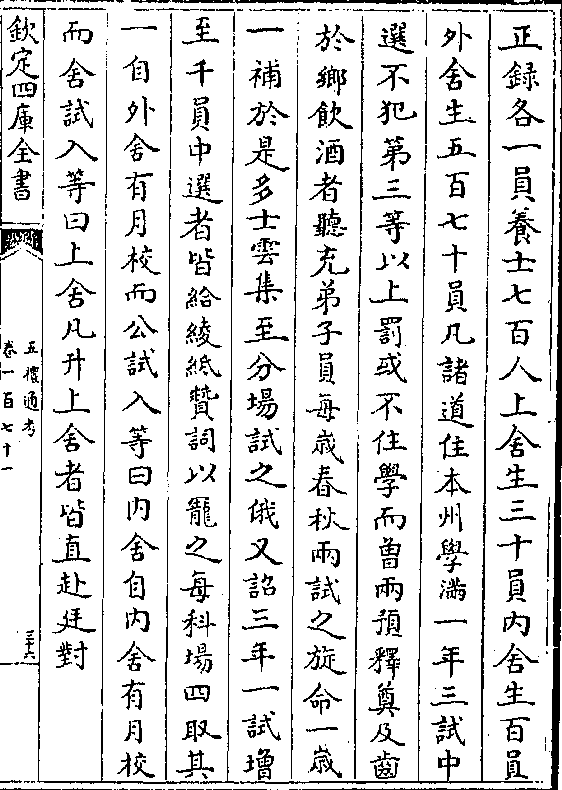 正録各一員養士七百人上舍生三十員内舍生百員
外舍生五百七十員凡諸道住本州學滿一年三試中
選不犯第三等以上罰或不住學而曽兩預釋奠及齒
於鄉飲酒者聽充弟子員每歲春秋兩試之旋命一歲
一補於是多士雲集至分場試之俄又詔三年一試增
至千員中選者皆給綾紙贊詞以寵之每科場四取其
一自外舍有月校而公試入等曰内舍自内舍有月校
而舍試入等曰上舍凡升上舍者皆直赴廷對
欽定四庫全書
五禮通考
卷一百七十一
三十六